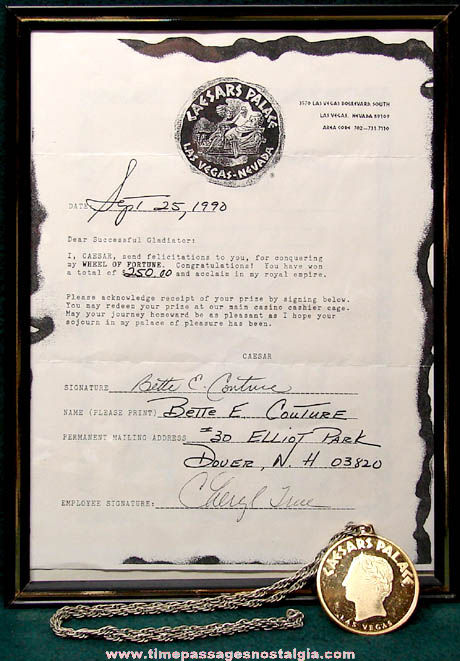 CAESARS PALACE
LAS VEGAS-NEVADA
3570 LAS VEGAS BOULEVARD SOUTH
LAS VEGAS, NEVADA 89109
AREA CODE 702-731-7110
DATE Sept 25, 1990
Dear Successful Gladiator:
I, CAESAR, send felicitations to you, for conquering
my WHEEL OF FORTUNE. Congratulations! You have won
a total of $250.00 and acclaim in my royal empire.
Please acknowledge receipt of your prize by signing below.
You may redeem your prize at our main casino cashier cage.
May your journey homeward be as pleasant as I hope your
sojourn in my palace of pleasure has been.
CAESAR
SIGNATURE Bette E. Couture
NAME (PLEASE PRINT) BETTE E. COUTURE
PERMANENT MAILING ADDRESS #30 ELLIOT PARK
DOVER, N. H 03820
EMPLOYEE SIGNATURE: Cheryl True
CAESARS PALACE
LAS VEGAS
www.timepassagesnostalgia.com